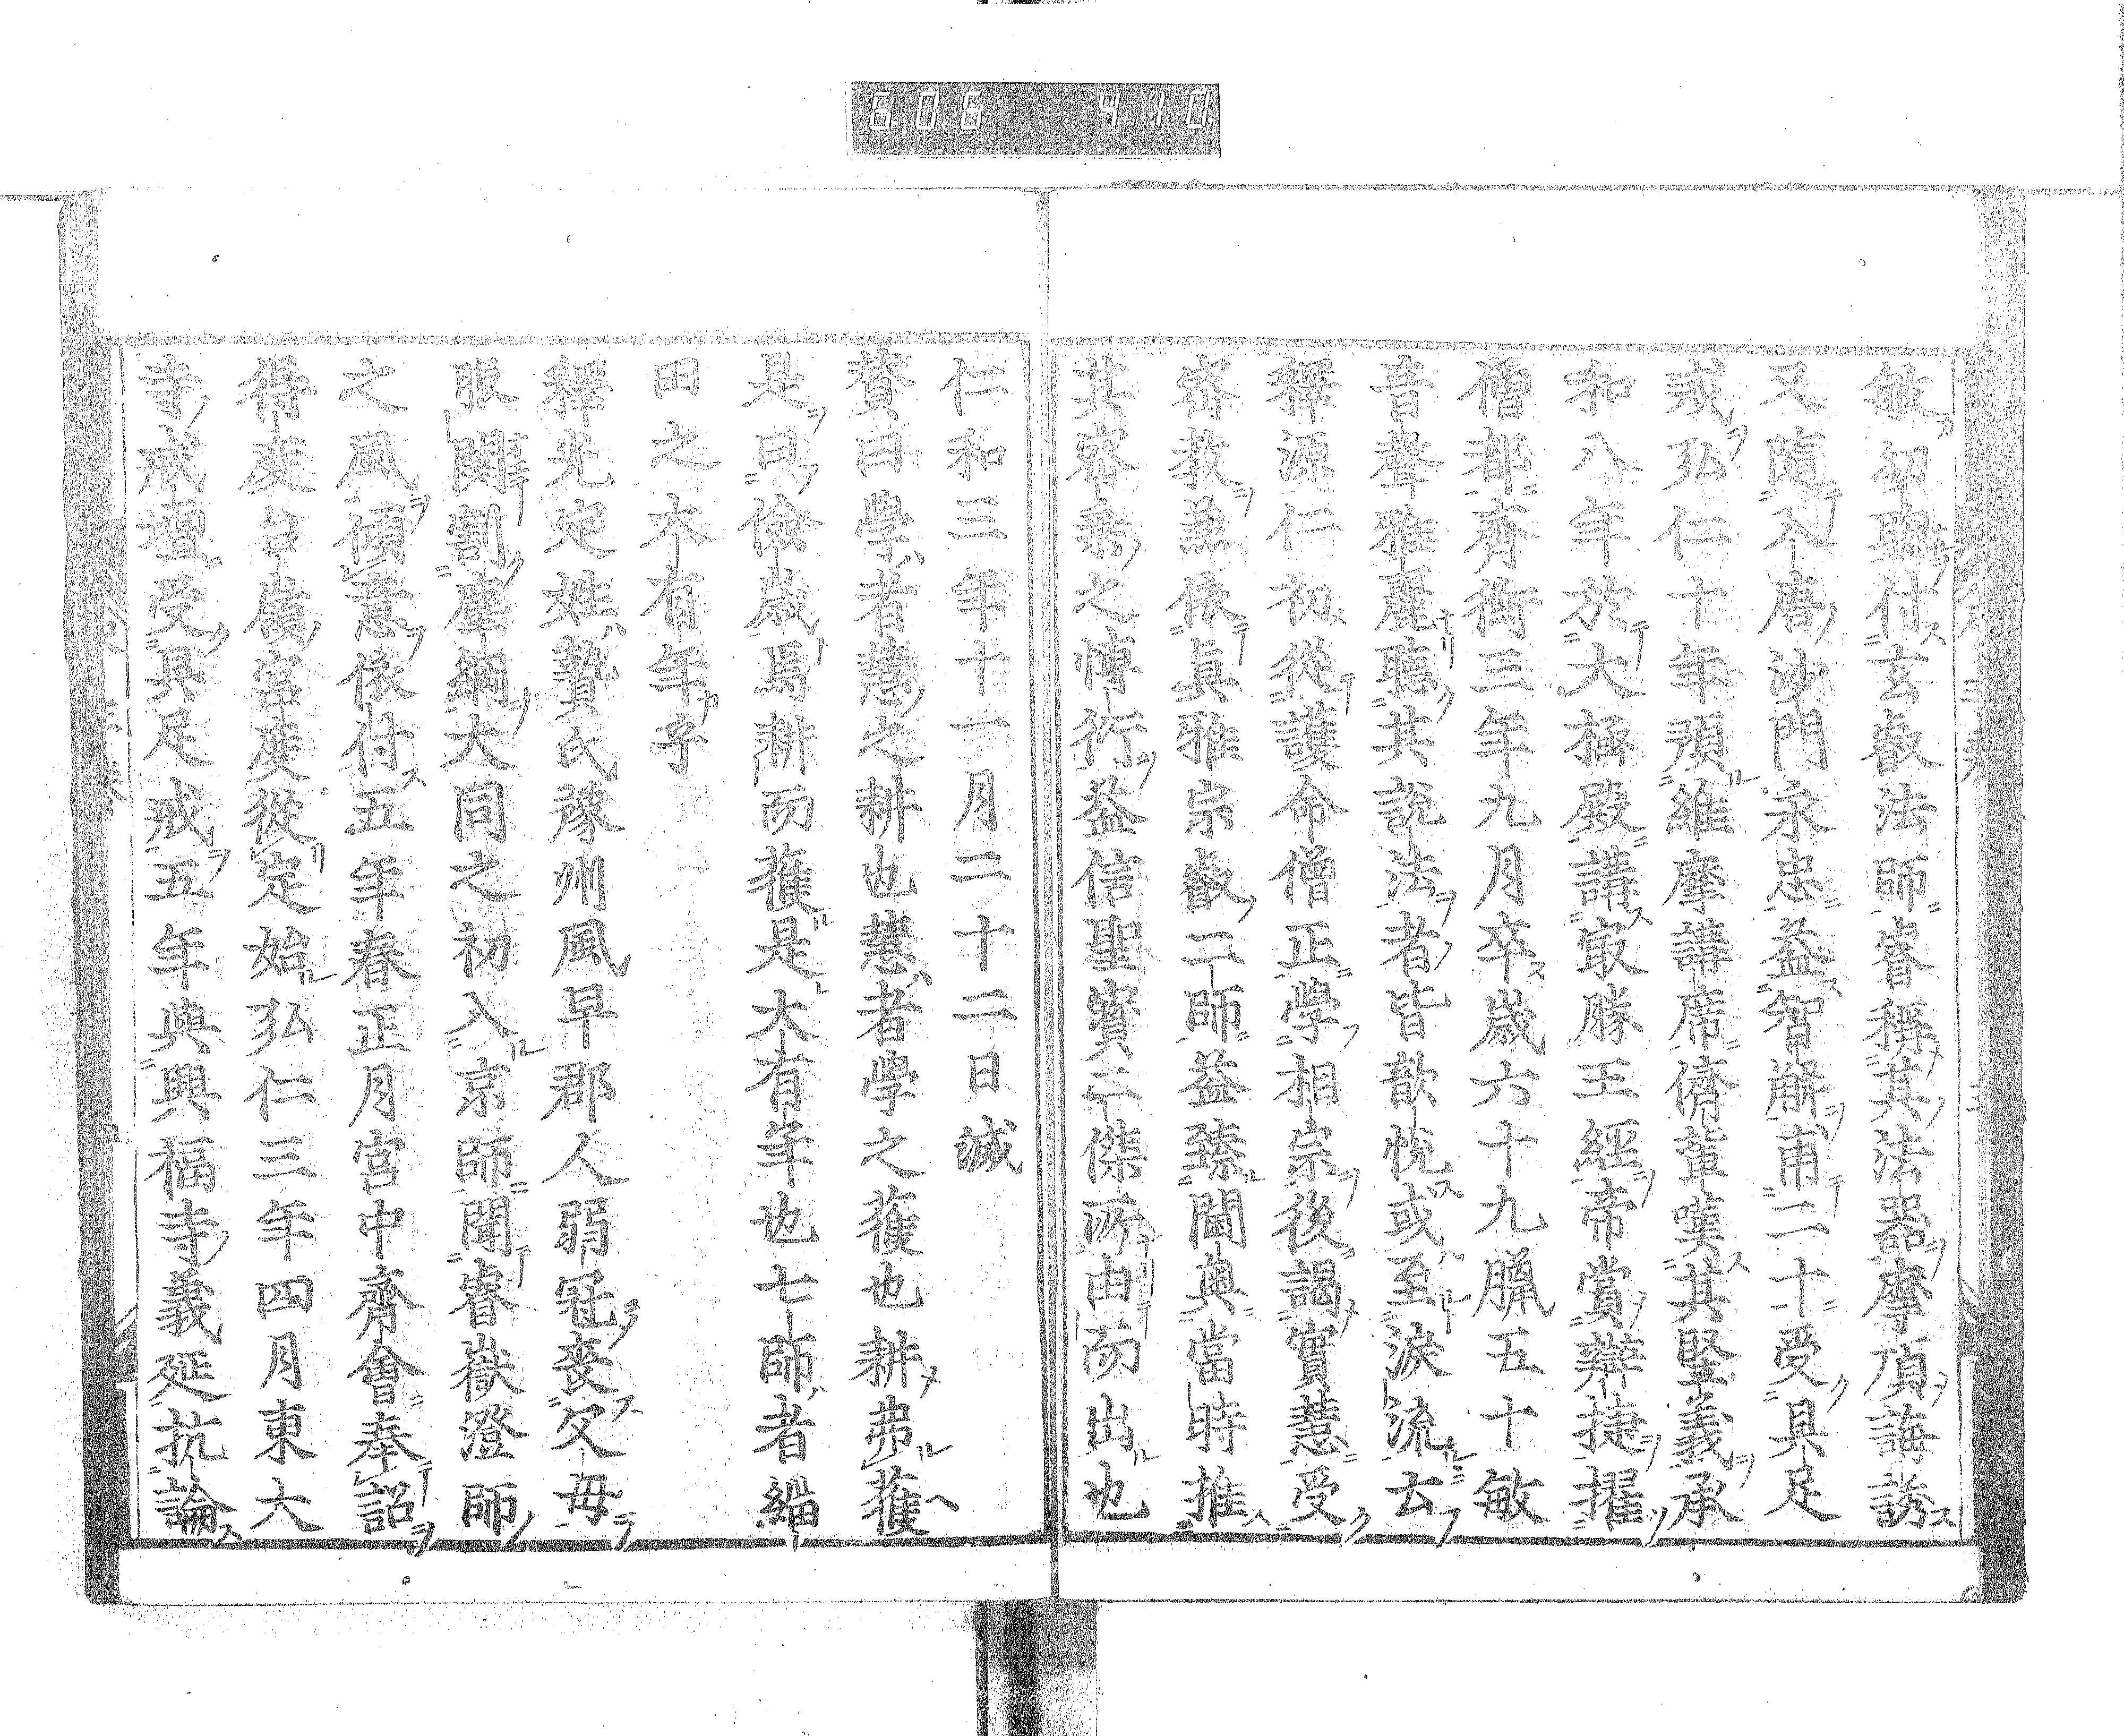 606 410
敏初聰付玄叡法師睿稱其法器摩頂誨誘
又隨入唐沙門永忠益智解甫二十受具足
戒弘仁十年預維摩講席儕輩嘆其堅義承
和八年於大極殿講㝡勝王經帝賞辯捷擢
僧都齊衡三年九月卒歲六十九臘五十敏
音聲雅麗聽其說法者皆歆悅或至淚流云
釋源仁初從護命僧正學相宗後謁實慧受
密教兼依眞雅宗叡二師益臻閫奧當時推
其密乘之愽衍益信聖寳二傑所由而出也
仁和三年十一月二十二日滅
賛曰學者慧之耕也慧者學之穫也耕弗穫
是曰儉歲焉耕而穫是大有年也七師者緇
田之大有年乎
釋光定姓贄氏豫州風早郡人弱冠喪父母
服闋割塵網大同之初入京師聞睿嶽澄師
之風傾意依付五年春正月宮中齋會奉詔
得度台嶺宮度從定始弘仁三年四月東大
寺戒壇受具足戒五年與興福寺義延抗論